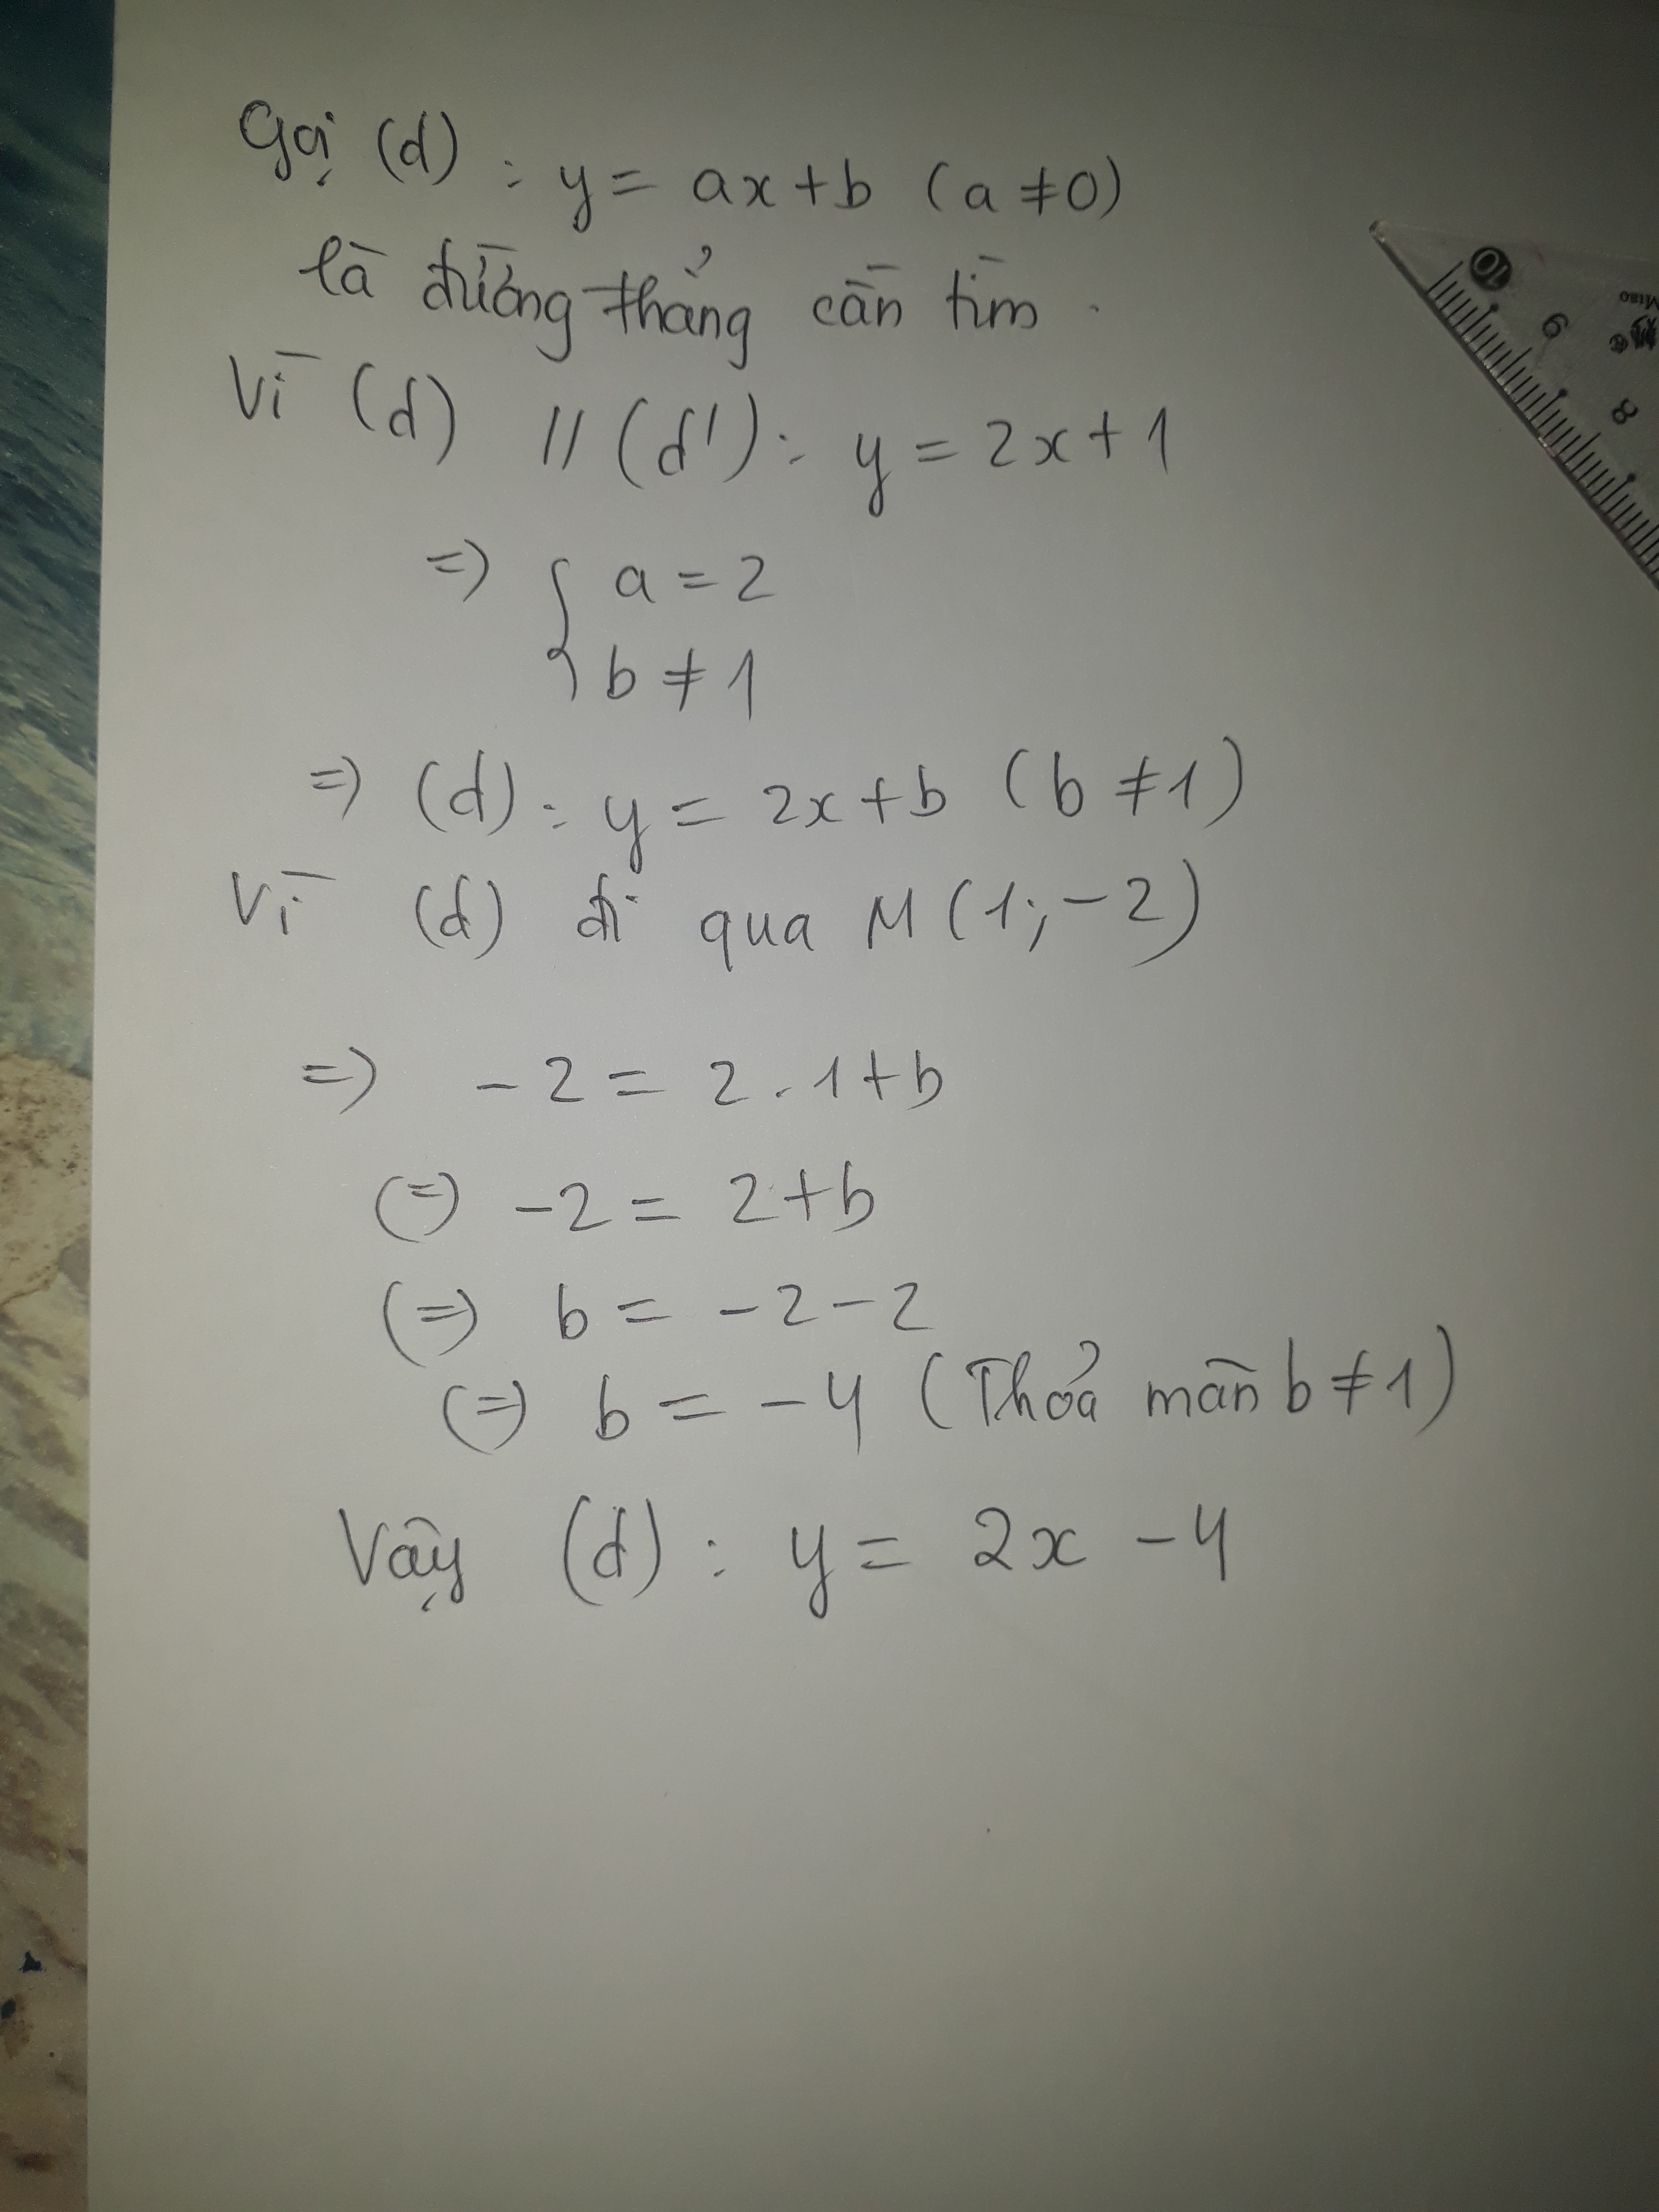 Gọi (d) : y = ax + b (a ≠ 0)
là đường thẳng cần tìm.
Vì (d) // (d') : y = 2x + 1
=> { a = 2
b ≠ 1
=> (d) : y = 2x + b (b ≠ 1)
Vì (d) đi qua M (1; -2)
=> -2 = 2 . 1 + b
(=) -2 = 2 + b
(=) b = -2 - 2
(=) b = -4 (Thỏa mãn b ≠ 1)
Vậy (d) : y = 2x - 4
10
9
8